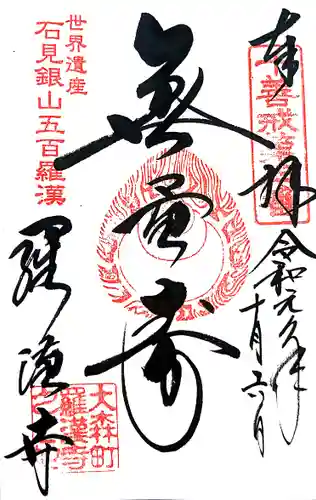 奉拝
令和元年十月六日
無量寿
世界遺産
石見銀山五百羅漢
羅漢寺
大森町
羅漢寺